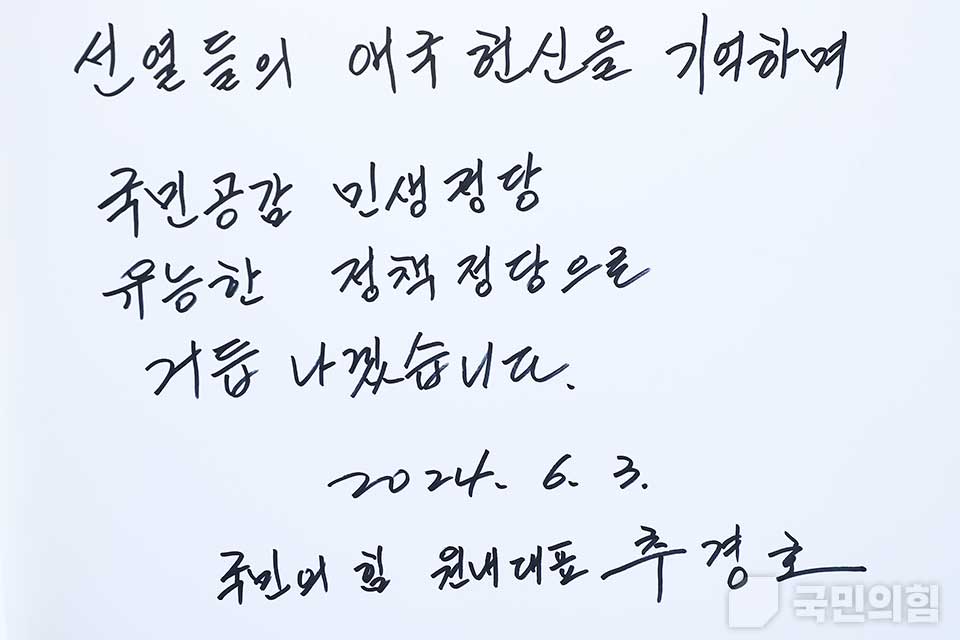 선열들의 애국 헌신을 기억하며
국민공감 민생정당
유능한 정책정당으로
거듭 나겠습니다.
2024. 6. 3.
국민의힘 원내대표 추경호
국민의힘